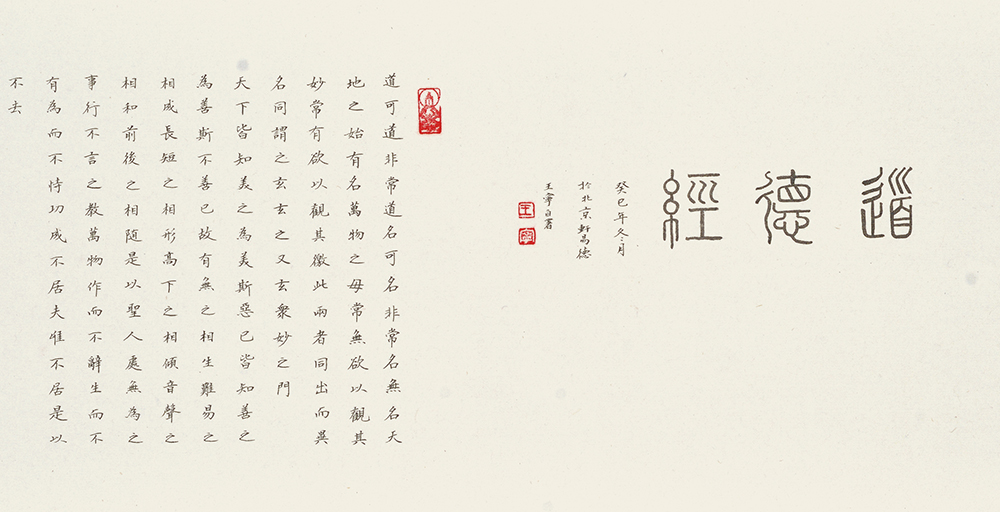 道德經
癸巳年冬月
於北京軒德
王寧自署
王
寧
道可道非常道名可名非常名無名天
地之始有名萬物之母常無欲以觀其
妙常有欲以觀其徼此兩者同出而異
名同謂之玄玄之又玄衆妙之門
天下皆知美之為美斯惡已皆知善之
為善斯不善已故有無之相生難易之
相成長短之相形高下之相傾音聲之
相和前後之相隨是以聖人處無為之
事行不言之教萬物作而不辭生而不
有為而不恃功成不居夫惟不居是以
不去